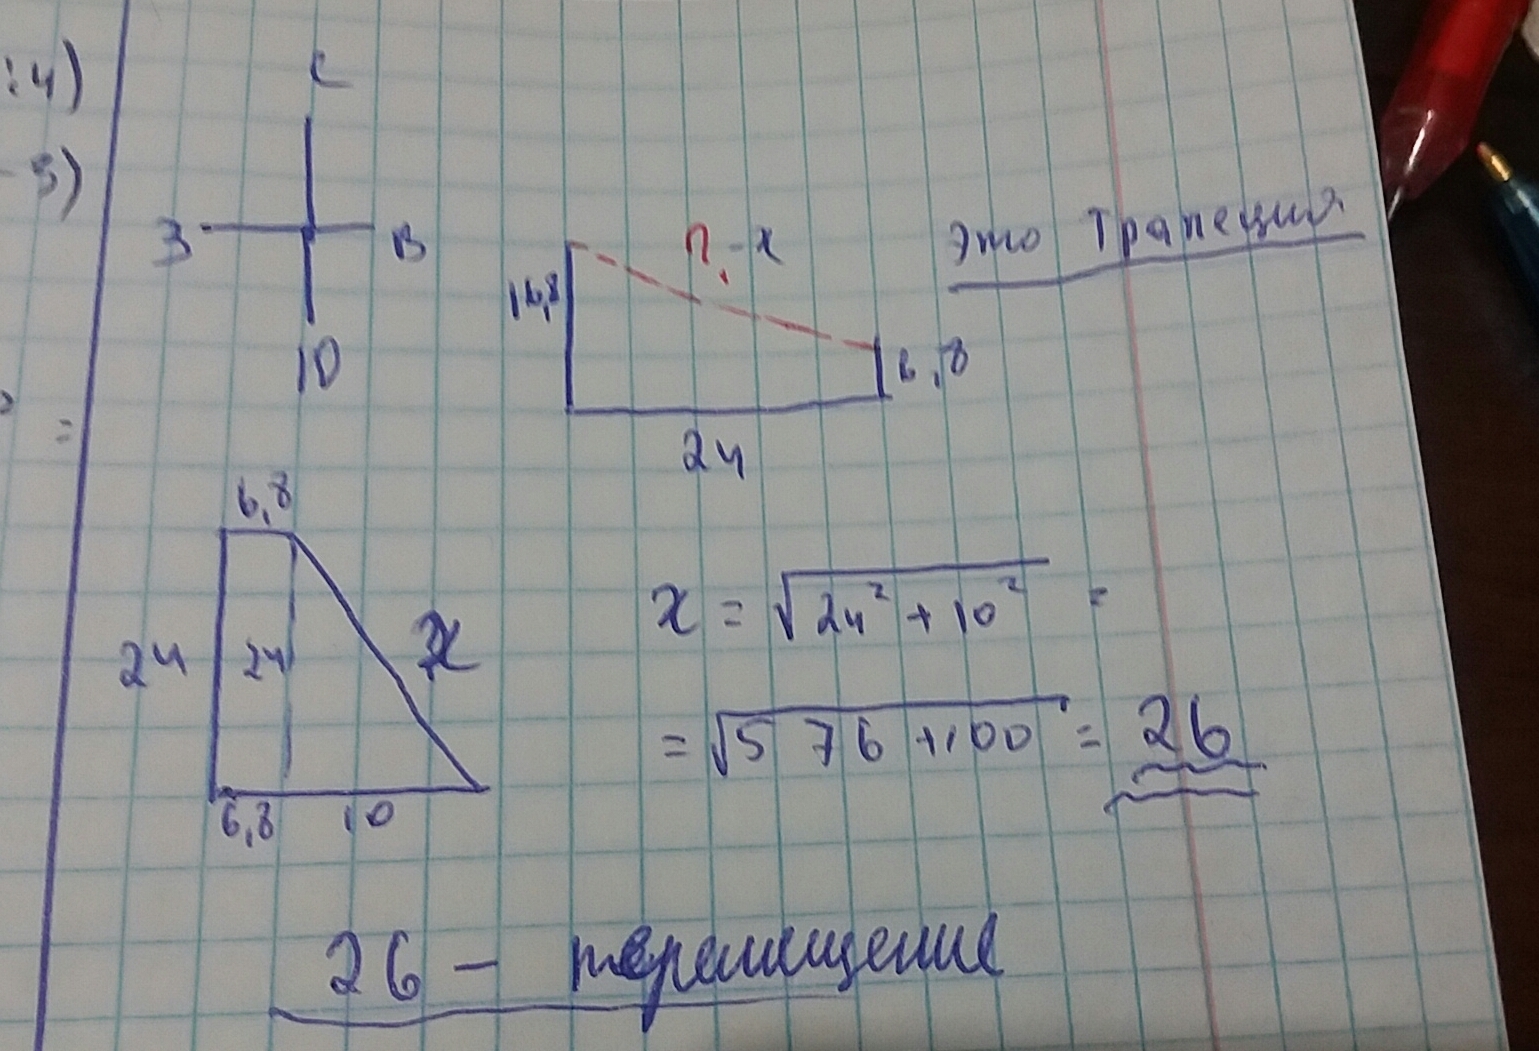 :4)
С
- 5)
З
В
Ю
16,8
?
- x
6,8
24
Это Трапеция.
=
6,8
24
24
x
6,8
10
x = √24² + 10² =
= √576 + 100 = 26
26 - перемещение